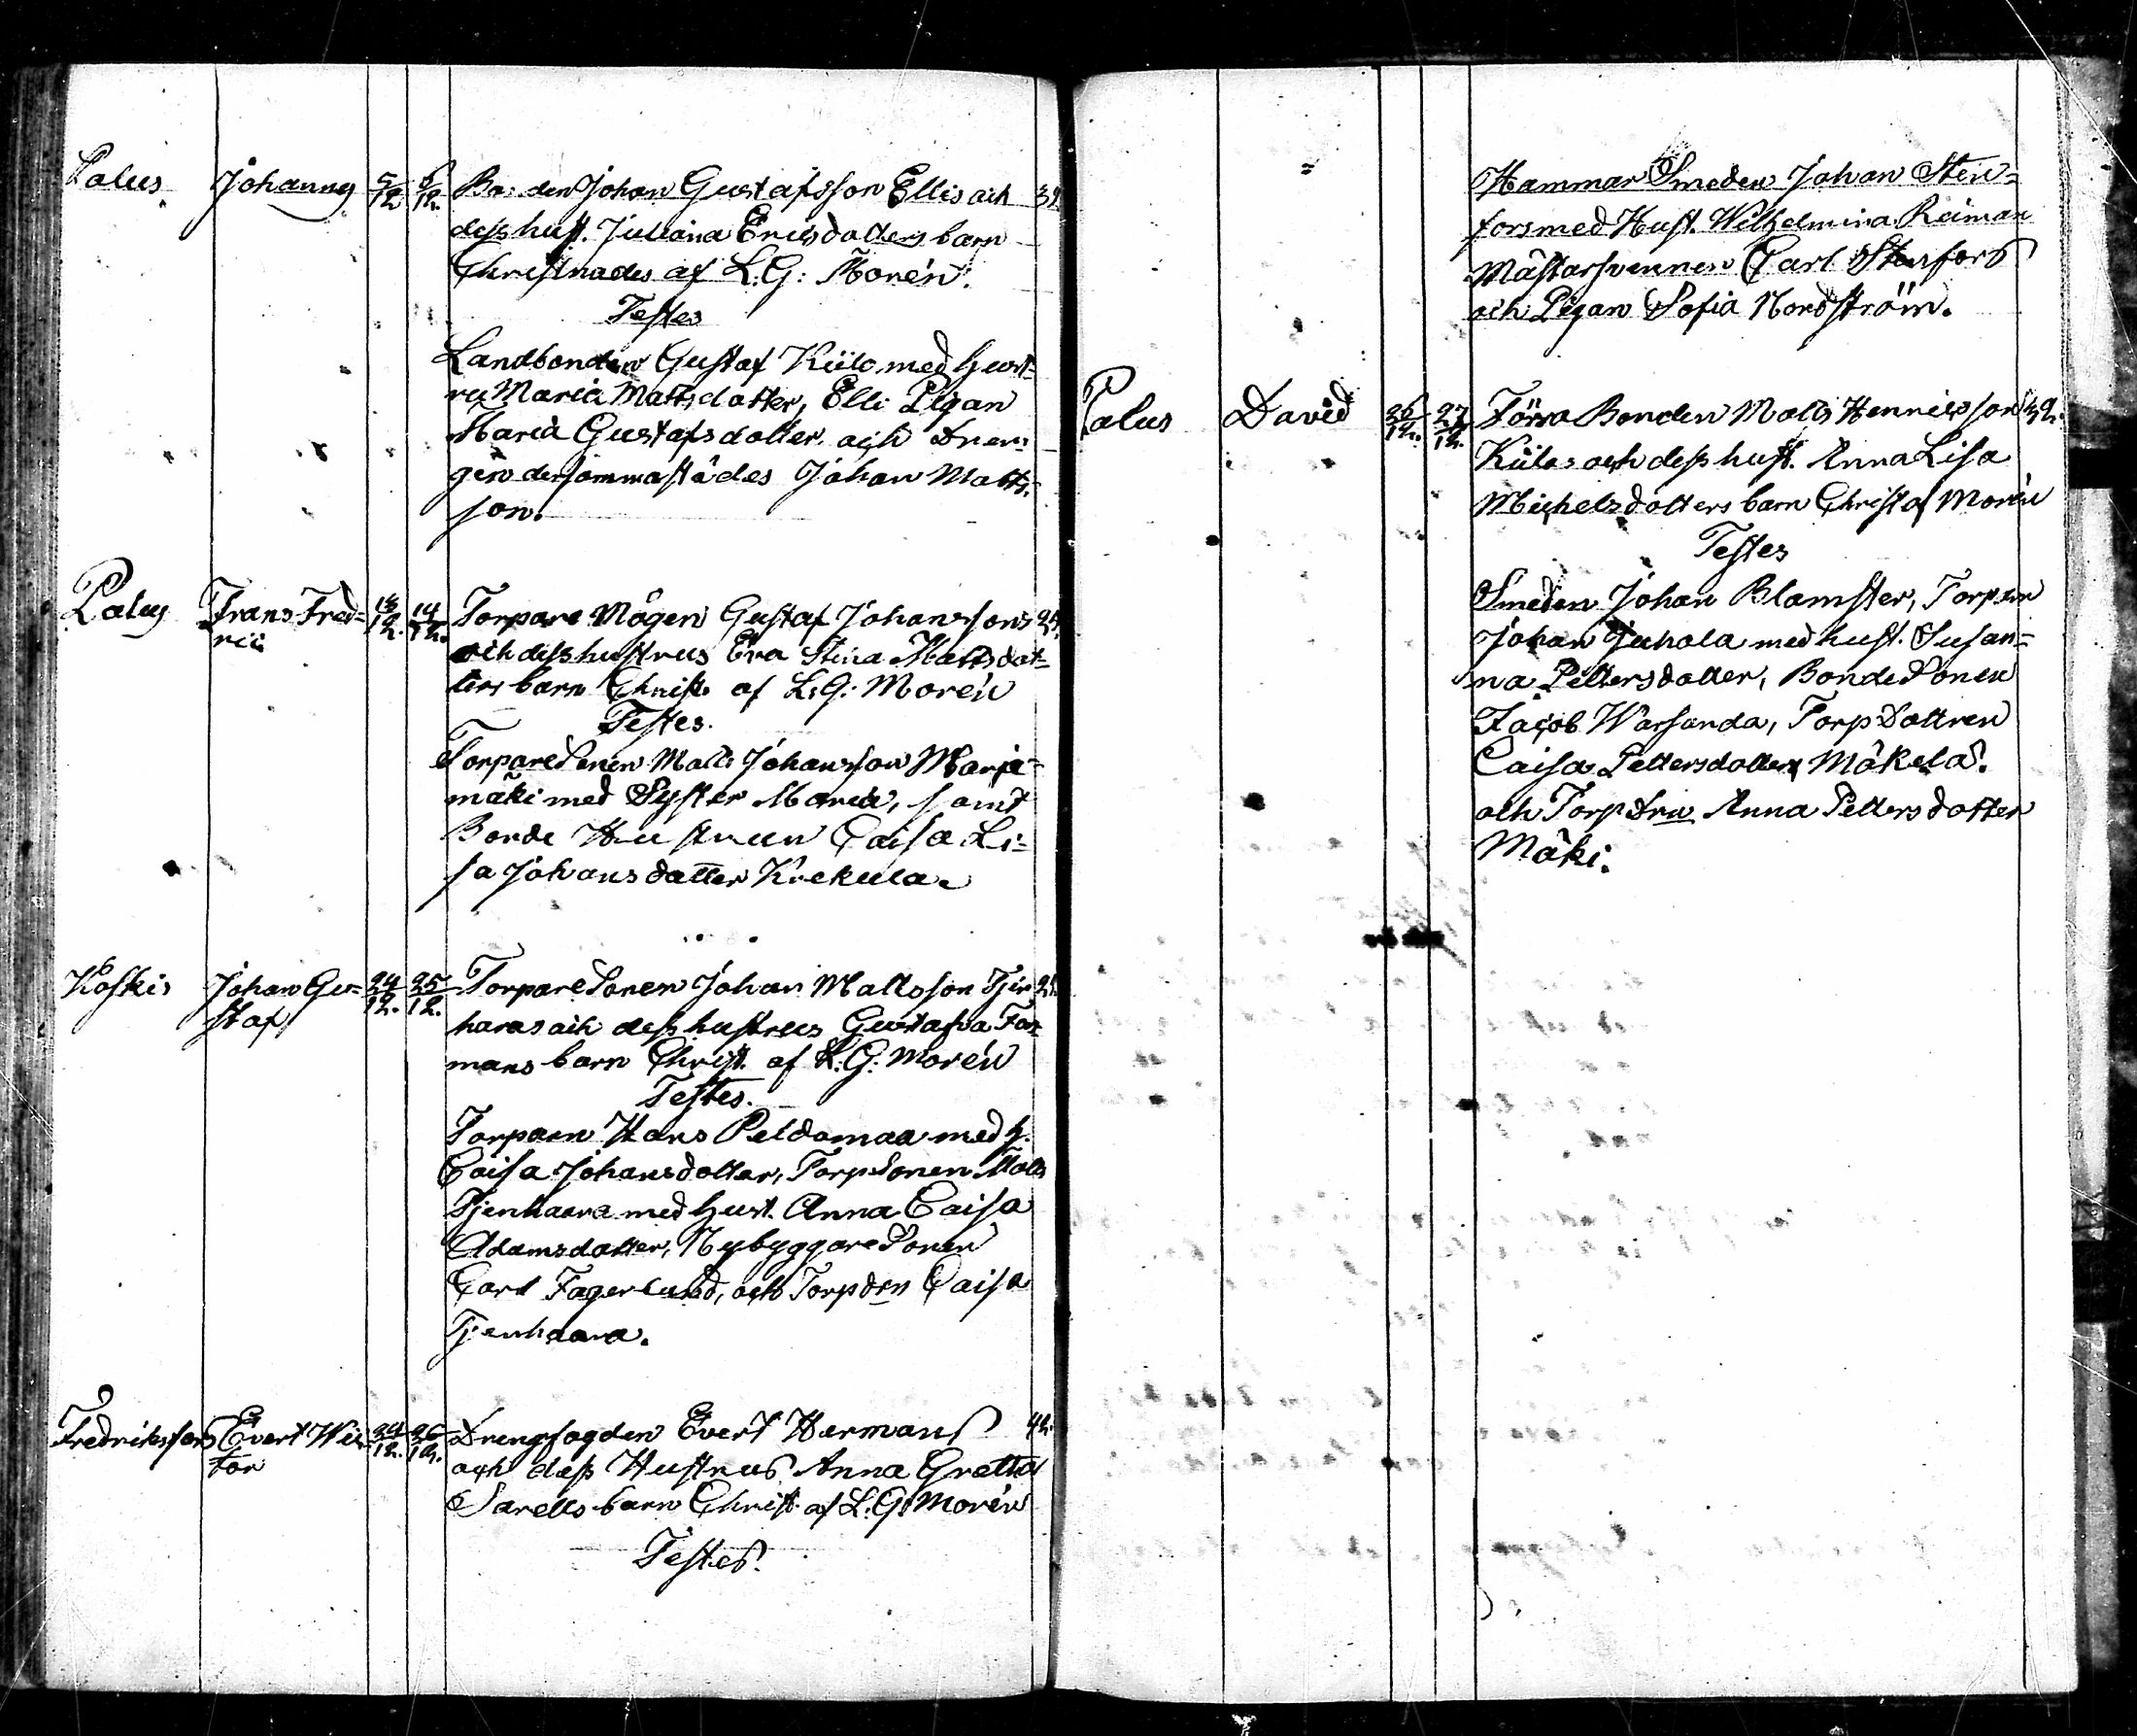 Palus Johannes 5/12 6/12 Bonden Johan Gustafsson Ellis och 39.
dess hust. Juliana Ericsdotters barn
Christnades af L. G: Morén.
Testes
Landbonden Gustaf Kiilo med hust=
ru Maria Mattsdotter, Elli Pigan
Maria Gustafsdotter och Dren=
gen dersommastädes Johan Matts=
son.
Palus Frans Fred= 13/12. 14/12. Torpare Mågen Gustaf Johanssons
ric och dess hustrus Eva Stina Mattsdot=
ters barn Christ. af L: G: Morén
Testes.
TorpareSonen Matts Johansson Marja=
mäki med Syster Maria, samt
Bonde Hustrun Caisa Li=
sa Johansdotter Krekula.
Koskis Johan Gu= 24/12. 25/12. TorpareSonen Johan Mattsson Tjen
staf haras och dess hustrus Gustafva Fors
mans barn Christ. af L: G: Morén
Testes.
Torparn Hans Peldomaa med h.
Caisa Johansdotter, TorpSonen Matts
Tjenhaara med hust. Anna Caisa
Adamsdotter, NybyggareSonen
Carl Fagerlund, och Torpdrn Caisa
Tjenhaara.
Fredriksfors Evert Wic= 24/12. 26/12. Drengfogden Evert Hermans 42.
tor och dess Hustrus Anna Gretta
Sarells barn Christ. af L. G: Morén
Testes.
Hammar Smeden Johan Sten=
fors med Hust. Wilhelmina Reiman
Mästarsvennen Carl Stenfors
och Pigan Sofia Nordström.
Palus David 26/12. 27/12. Förra Bonden Matts Henricsson 32.
Kiilos och dess hust. Anna Lisa
Michelsdotters barn Christ af Morén
Testes
Smeden Johan Blomster, Torparn
Johan Juhola med hust. Susan=
na Pettersdotter, BondeSonen
Jacob Warsanda, Torp Dottren
Caisa Pettersdotter Mäkelä.
och TorpDrn Anna Pettersdotter
Mäki.